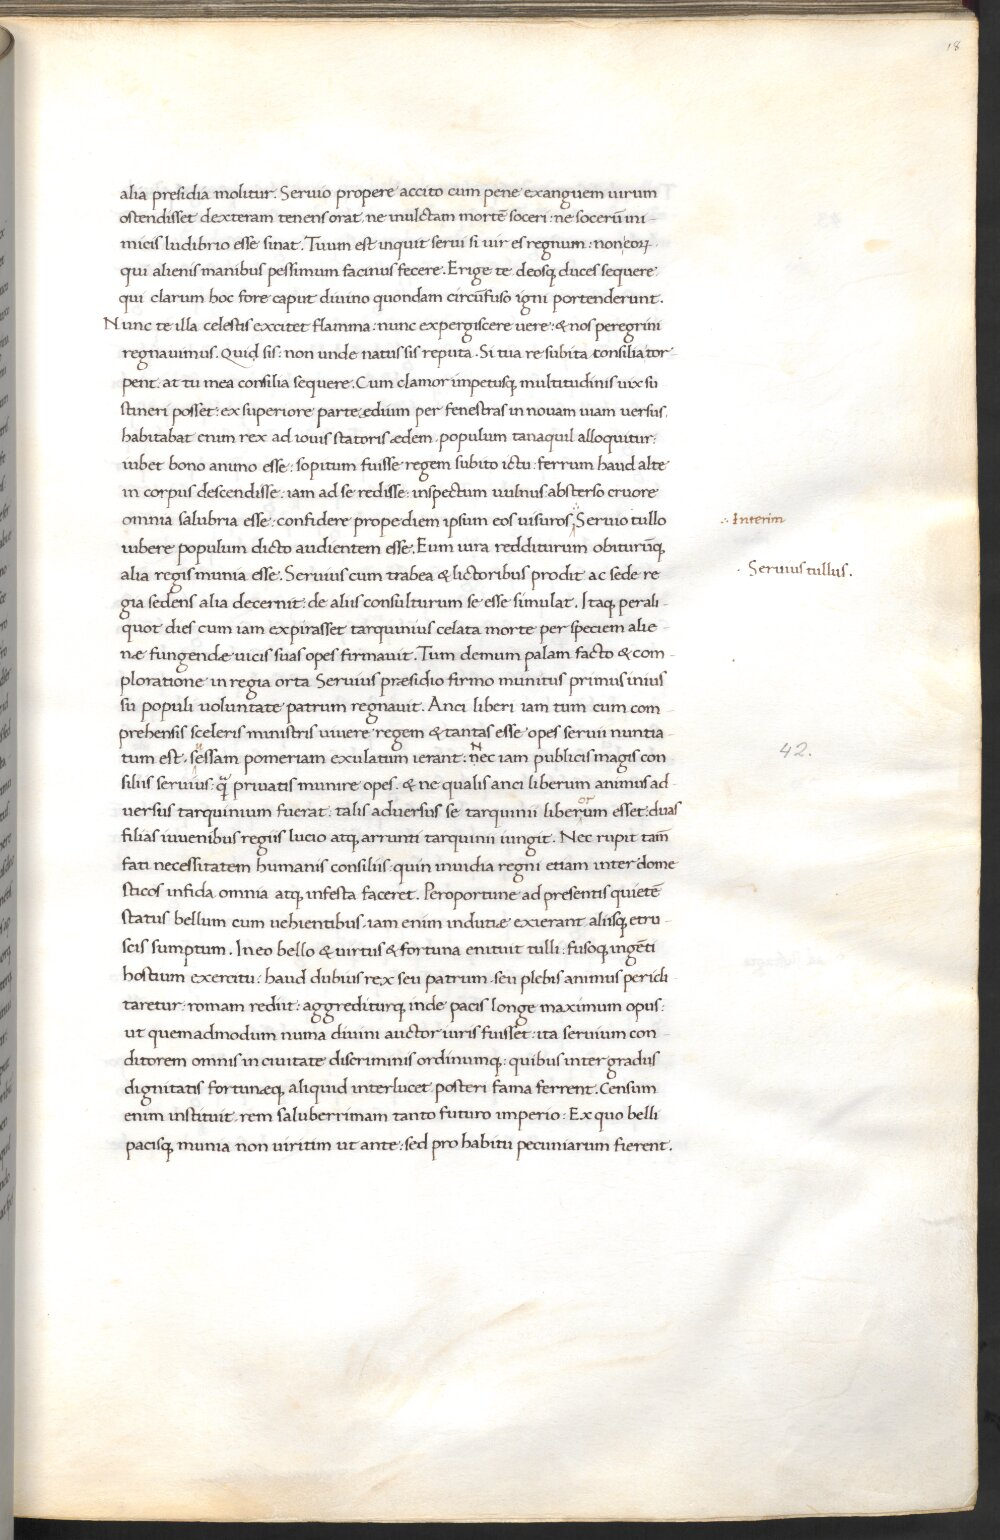 18
alia presidia molitur. Seruio propere accito cum pene exanguem uirum
ostendisset dexteram tenens orat. ne inulctam mortē soceri: ne socerū ini-
micis ludibrio esse sinat. Tuum est inquit serui si uir es regnum: non eoꝝ.
qui alienis manibus pessimum facinus fecere. Erige te deosq; duces sequere
qui clarum hoc fore caput diuino quondam circūfuso igni portenderunt.
Nunc te illa celestis excitet flamma: nunc expergiscere uere: & nos peregrini
regnauimus. Quid sis: non unde natus sis reputa. Si tua re subita consilia tor-
pent: at tu mea consilia sequere. Cum clamor impetusq; multitudinis uix su
stineri posset: ex superiore parte ędium per fenestras in nouam uiam uersus.
habitabat enim rex ad iouis statoris ædem. populum tanaquil alloquitur:
iubet bono animo esse: sopitum fuisse regem subito ictu: ferrum haud alte
in corpus descendisse: iam ad se redisse: inspectum uulnus absterso cruore
omnia salubria esse: confidere propediem ipsum eos uisuros. Seruio tullo
∴ Interim
iubere populum dicto audientem esse. Eum iura redditurum obiturūq;
alia regis munia esse. Seruius cum trabea & lictoribus prodit ac sede re
· Seruius tullus.
gia sedens alia decernit: de aliis consulturum se esse simulat. Itaq; per ali-
quot dies cum iam expirasset tarquinius celata morte per speciem alie-
næ fungendæ uicis suas opes firmauit. Tum demum palam facto & com-
ploratione in regia orta Seruius præsidio firmo munitus primus iniuf
su populi uoluntate patrum regnauit. Anci liberi iam tum cum com-
prehensis sceleris ministris uiuere regem & tantas esse opes seruii nuntia-
tum est. sessam pomeriam exulatum ierant: nec iam publicis magis con
N
42.
siliis seruius: q̄ priuatis munire opes. & ne qualis anci liberum animus ad-
uersus tarquinium fuerat: talis aduersus se tarquinii liberum esset: duas
or
filias iuuenibus regiis lucio atq; arrunti tarquinii iungit. Nec rupit tam̄
fati necessitatem humanis consiliis: quin inuidia regni etiam inter dome
sticos infida omnia atq; infesta faceret. Peroportune ad presentis quietē
status bellum cum uehientibus. iam enim indutiæ exierant aliisq; etru-
scis sumptum. In eo bello & uirtus & fortuna enituit tulli: fusoq; ingēti
hostium exercitu: haud dubius rex seu patrum. seu plebis animus pericli
taretur: romam rediit: aggrediturq; inde pacis longe maximum opus:
ut quemadmodum numa diuini auctor iuris fuisset: ita seruium con-
ditorem omnis in ciuitate discriminis ordinumq;: quibus inter gradus
dignitatis fortunæq; aliquid interlucet posteri fama ferrent. Censum
enim instituit: rem saluberrimam tanto futuro imperio: Ex quo belli
pacisq; munia non uiritim ut ante: sed pro habitu pecuniarum fierent.